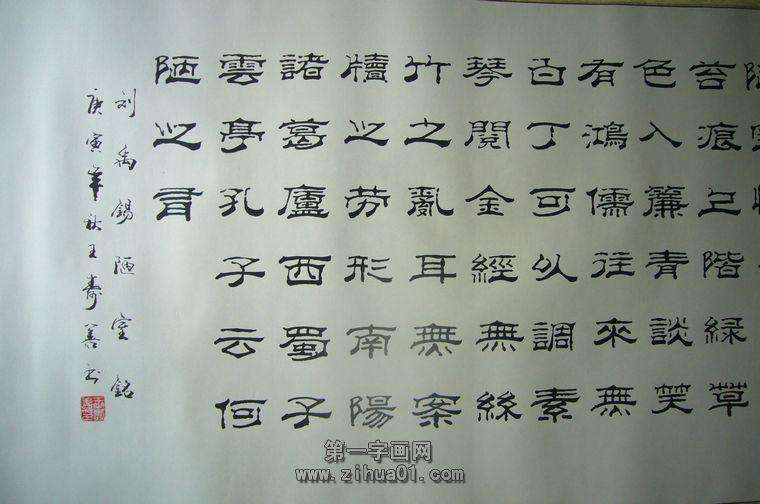 苔痕上階綠草
色入簾青談笑
有鴻儒往來無
白丁可以調素
琴閱金經無絲
竹之亂耳無案
牘之勞形南陽
諸葛廬西蜀子
雲亭孔子云何
陋之有
刘禹錫陋室銘
庚寅年秋王壽善书
第一字画网
www.zihua01.com